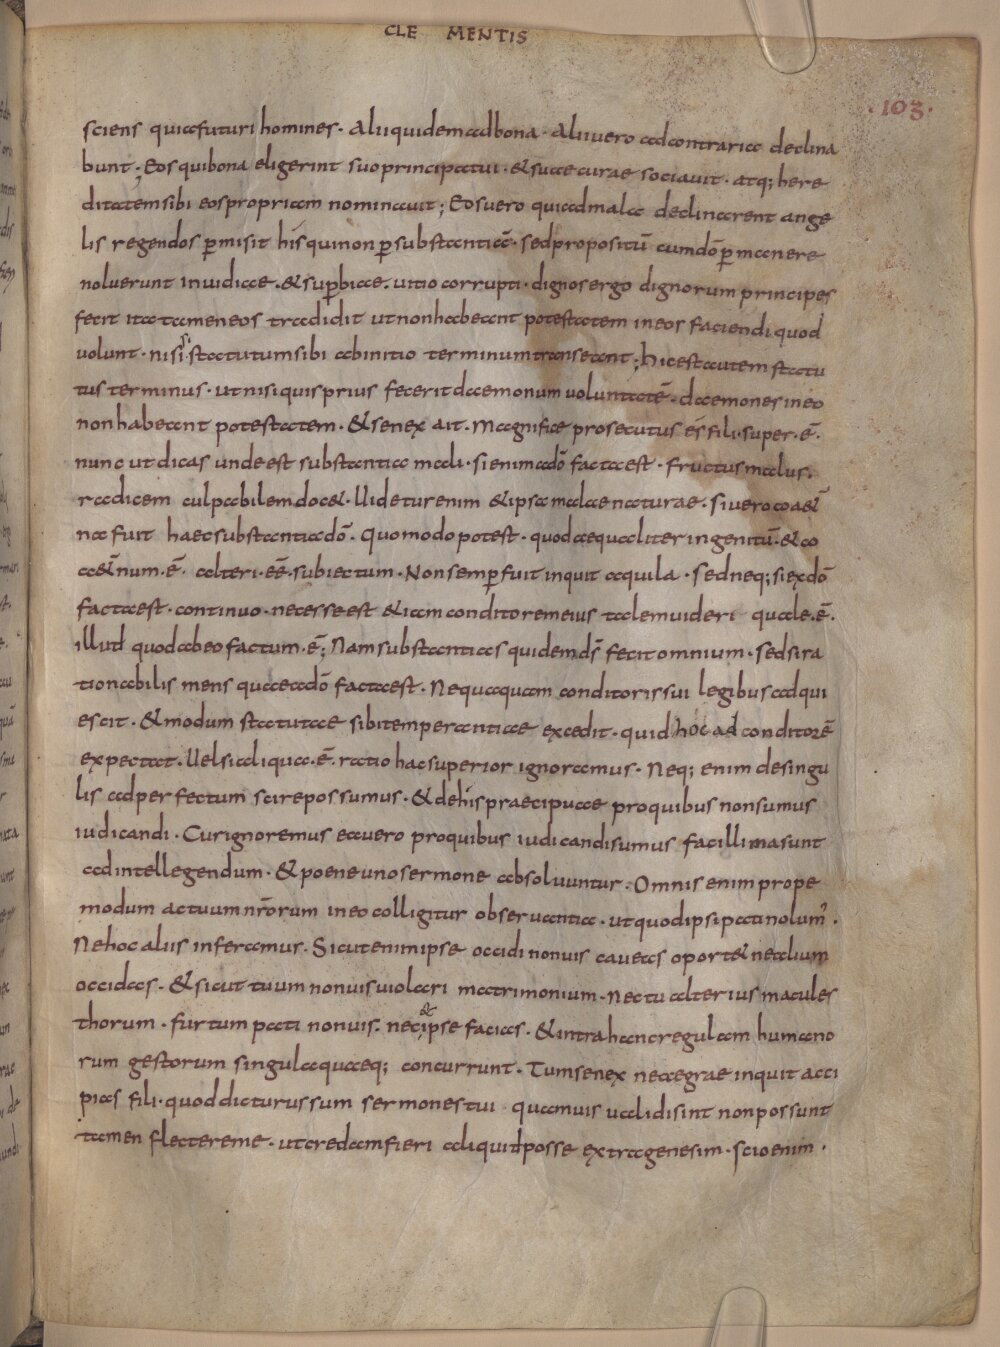 CLE MENTIS
· 103 ·
sciens quia futuri homines · Alii quidem ad bona · Alii vero ad contraria declina
bunt ; Eos qui bona eligerint suo principatui · & suae curae sociavit · atq; here
ditatem sibi eos propriam nominavit ; Eos vero qui ad mala declinarent ange
lis regendos p̄misit his qui non p̄ substantiā · sed propositū cum dō p̄manere
noluerunt invidiae · & sup̄biae · vitio corrupti · dignos ergo dignorum principes
fecit ita tamen eos tradidit ut non habeant potestatem in eos faciendi quod
volunt · nisi si statutum sibi ab initio terminum transeant ; hic est autem statu
tus terminus · ut nisi quis prius fecerit daemonum voluntatē · daemones in eo
non habeant potestatem · & senex ait · Magnifice prosecutus es fili · super · ē ·
nunc ut dicas unde est substantia mali · si enim a dō facta est · fructus malus ·
radicem culpabilem doc& · Videtur enim & ipsa mala e naturae · Si vero coa&̄
na fuit haec substantia dō · quomodo potest · quod aequaliter ingenitū · & co
a&̄num · ē · alteri · eē · subiectum · Non semp̄ fuit inquit aquila · sed neq; si ex dō
facta est · continuo · necesse est & iam conditorem eius talem videri quale · ē ·
illud quod ab eo factum · ē ; Nam substantias quidem d̄s fecit omnium · sed si ra
tionabilis mens quae a dō facta est · Nequaquam conditoris sui legibus adqui
escit · & modum statutae sibi temperantiae excedit · quid hoc ad conditorē
expectat · Vel si aliqua · ē · ratio hac superior ignoramus · Neq; enim de singu
lis ad perfectum scire possumus · & de his praecipuae pro quibus non sumus
iudicandi · Cur ignoremus ea vero pro quibus iudicandi sumus facillima sunt
ad intellegendum · & poene uno sermone absolvuntur · Omnis enim prope
modum actuum nr̄orum in eo colligitur observantia · ut quod ipsi pati nolum' ·
Ne hoc aliis inferamus · Sicut enim ipse occidi non vis caveas oport& ne alium
occidas · & sicut tuum non vis violari matrimonium · Nec tu alterius macules
thorum · furtum pati non vis · nec & ipse facias · & intra hanc regulam humano
rum gestorum singula quaeq; concurrunt · Tum senex ne aegrae inquit acci
pias fili · quod dicturus sum sermones tui · quamvis validi sint non possunt
tamen flectere me · ut credam fieri aliquid posse extra genesim · scio enim ·